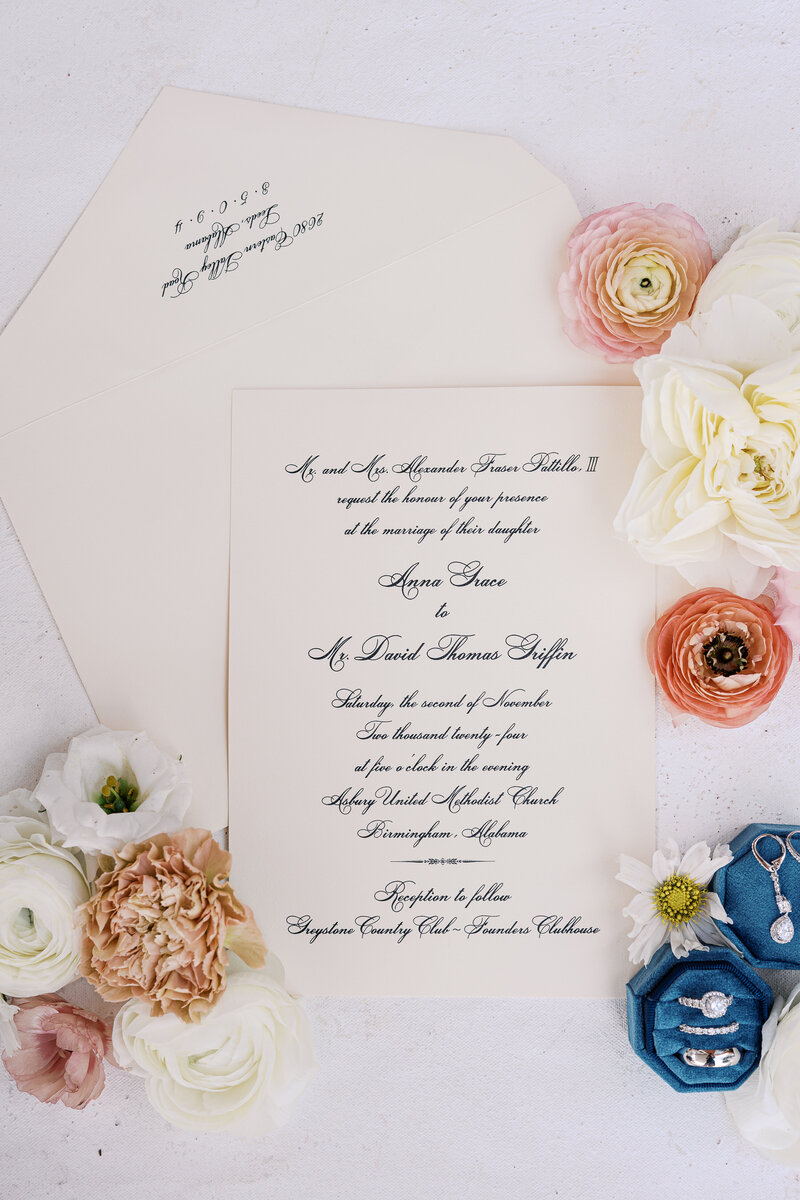 2680 Eastern Valley Road
Leeds, Alabama
3 · 5 · 0 · 9 · 4
Mr. and Mrs. Alexander Fraser Pattillo, III
request the honour of your presence
at the marriage of their daughter
Anna Grace
to
Mr. David Thomas Griffin
Saturday, the second of November
Two thousand twenty-four
at five o'clock in the evening
Asbury United Methodist Church
Birmingham, Alabama
Reception to follow
Greystone Country Club ~ Founders Clubhouse